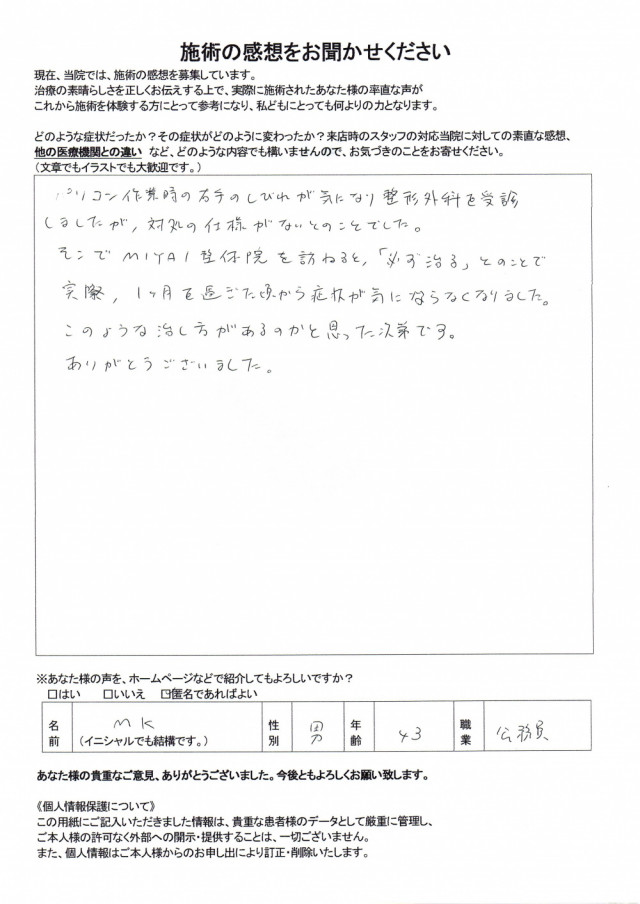 施術の感想をお聞かせください
現在、当院では、施術の感想を募集しています。
治療の素晴らしさを正しくお伝えする上で、実際に施術されたあなた様の率直な声が
これから施術を体験する方にとって参考になり、私どもにとっても何よりの力となります。
どのような症状だったか？その症状がどのように変わったか？来店時のスタッフの対応当院に対しての素直な感想、
他の医療機関との違い など、どのような内容でも構いませんので、お気づきのことをお寄せください。
（文章でもイラストでも大歓迎です。）
パソコン作業時の右手のしびれが気になり整形外科を受診
しましたが，対処の仕様がないとのことでした。
そこでMIYAI整体院を訪ねると，「必ず治る」とのことで
実際，1ヶ月を過ごた頃から症状が気にならなくなりました。
このような治し方があるのかと思った次第です。
ありがとうございました。
※あなた様の声を、ホームページなどで紹介してもよろしいですか？
□はい □いいえ ☑匿名であればよい
名前 MK （イニシャルでも結構です。） 性別 男 年齢 43 職業 公務員
あなた様の貴重なご意見、ありがとうございました。今後ともよろしくお願い致します。
《個人情報保護について》
この用紙にご記入いただきました情報は、貴重な患者様のデータとして厳重に管理し、
ご本人様の許可なく外部への開示・提供することは、一切ございません。
また、個人情報はご本人様からのお申し出により訂正・削除いたします。